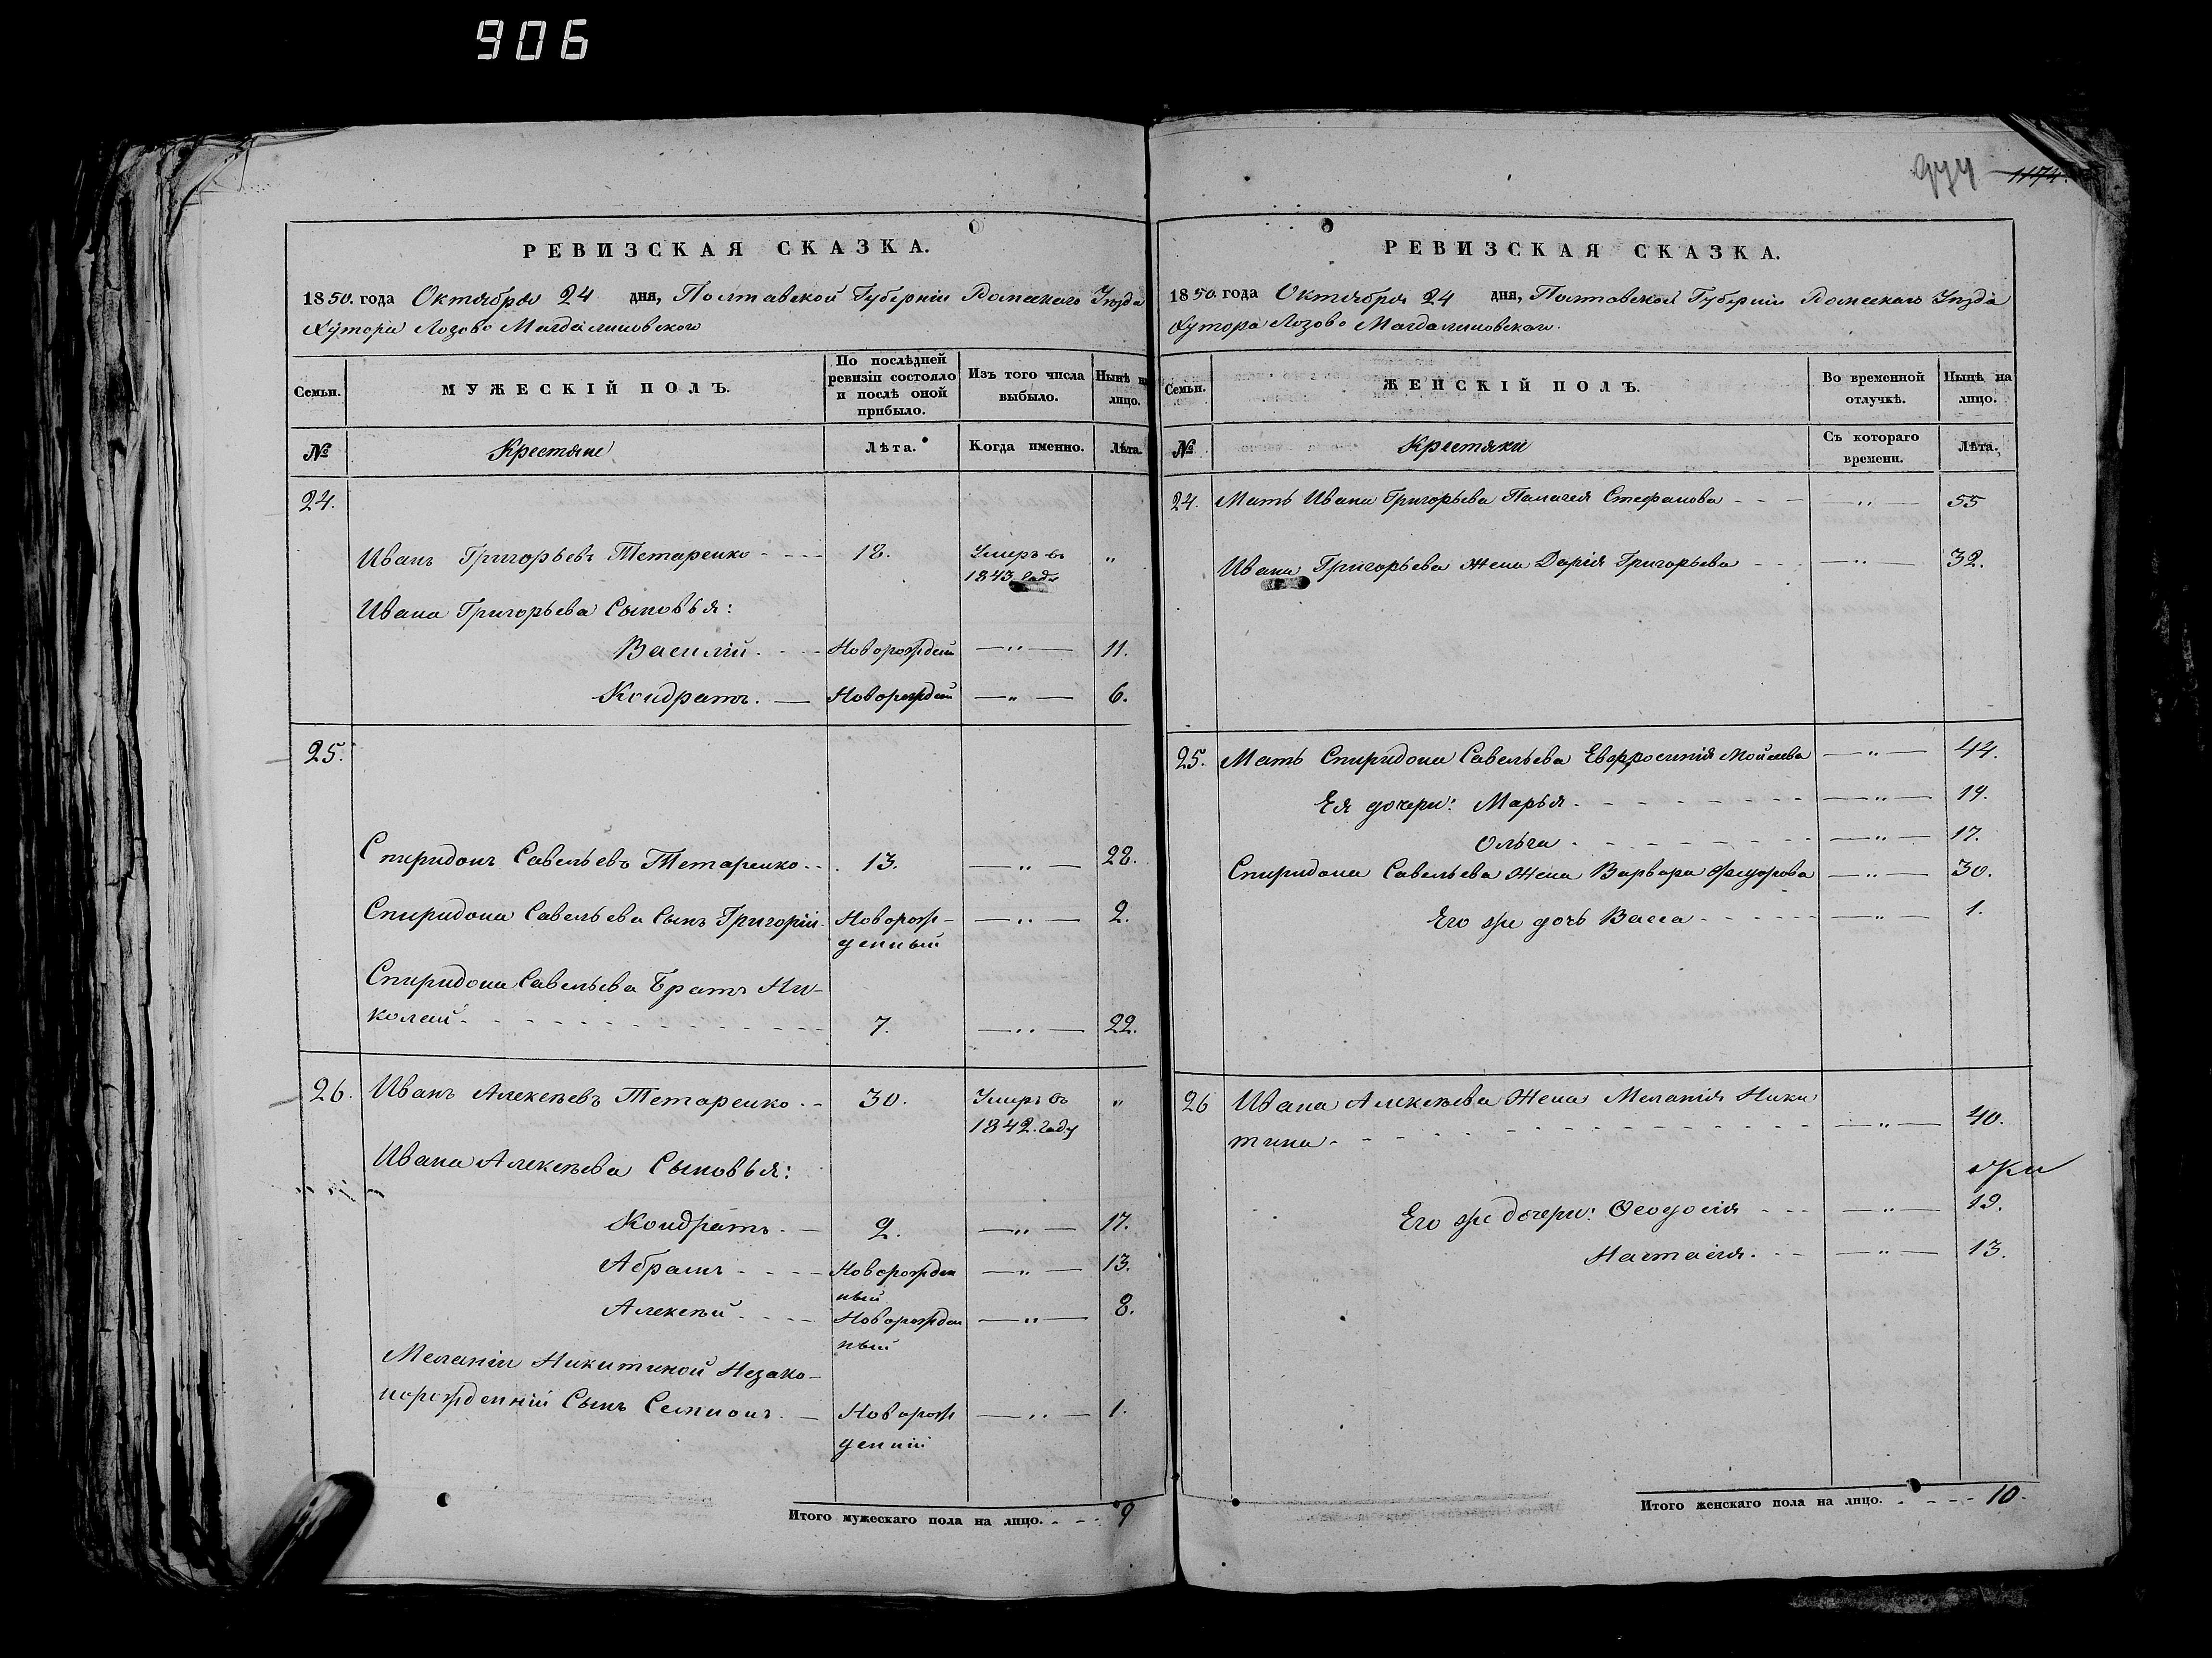 906
974 1174.
РЕВИЗСКАЯ СКАЗКА.
1850. года Октября 24 дня, Полтавской Губерніи Роменскаго Уезда
Хутора Лозово Магдалиновского
Семьи. МУЖЕСКІЙ ПОЛЪ. По послѣдней ревизіи состояло и послѣ оной прибыло. Изъ того числа выбыло. Нынѣ на лицо.
№ Крестяне Лѣта. Когда именно. Лѣта.
24.
Иванъ Григорьевъ Тетаренко - - - 18. Умеръ въ „
1843 Году
Ивана Григорьева Сыновья:
Василій. - - - Новорожденій — „ — 11.
Кондратъ. — Новорожденій — „ — 6.
25.
Спиридонъ Савельевъ Тетаренко - - . 13. — „ — 28.
Спиридона Савельева Сынъ Григорій. Новорож- — „ — 2.
денный
Спиридона Савельева Братъ Ни-
колай - - - 7. — „ — 22.
26. Иванъ Алексѣевъ Тетаренко - - 30. Умеръ въ „
1842. Году
Ивана Алексѣева Сыновья:
Кондратъ. — 2. — „ — 17.
Абрамъ - - - - Новорожден — „ — 13.
ный
Алексѣй - - - - Новорожден — „ — 8.
ный
Меланіи Никитиной Незако-
норожденній Сынъ Семионъ. — Новорож — „ — 1.
денній
Итого мужескаго пола на лицо. - - - 9
РЕВИЗСКАЯ СКАЗКА.
1850. года Октября 24 дня, Полтавской Губерніи Роменскаго Уезда
Хутора Лозово Магдалиновскаго.
Семьи. ЖЕНСКІЙ ПОЛЪ. Во временной отлучкѣ. Нынѣ на лицо.
№ Крестяки Съ котораго времени. Лѣта.
24. Мать Ивана Григорьева Палагея Стефанова - - - — „ — 55
Ивана Григорьева Жена Дарія Григорьева - - - — „ — 32.
25. Мать Спиридона Савельева Евфросинія Мойсеева — „ — 44.
Ея дочери: Марья. - - - — „ — 19.
Ольга. - - - — „ — 17.
Спиридона Савельева Жена Варвара Федорова — „ — 30.
Его же дочь Васса - - - — „ — 1.
26 Ивана Алексѣева Жена Меланія Ники
тина - - - — „ — 40.
Его же дочери: Феодосія - - - — „ — 19.
Настасия. - - - — „ — 13.
Итого женскаго пола на лицо. - - - 10.